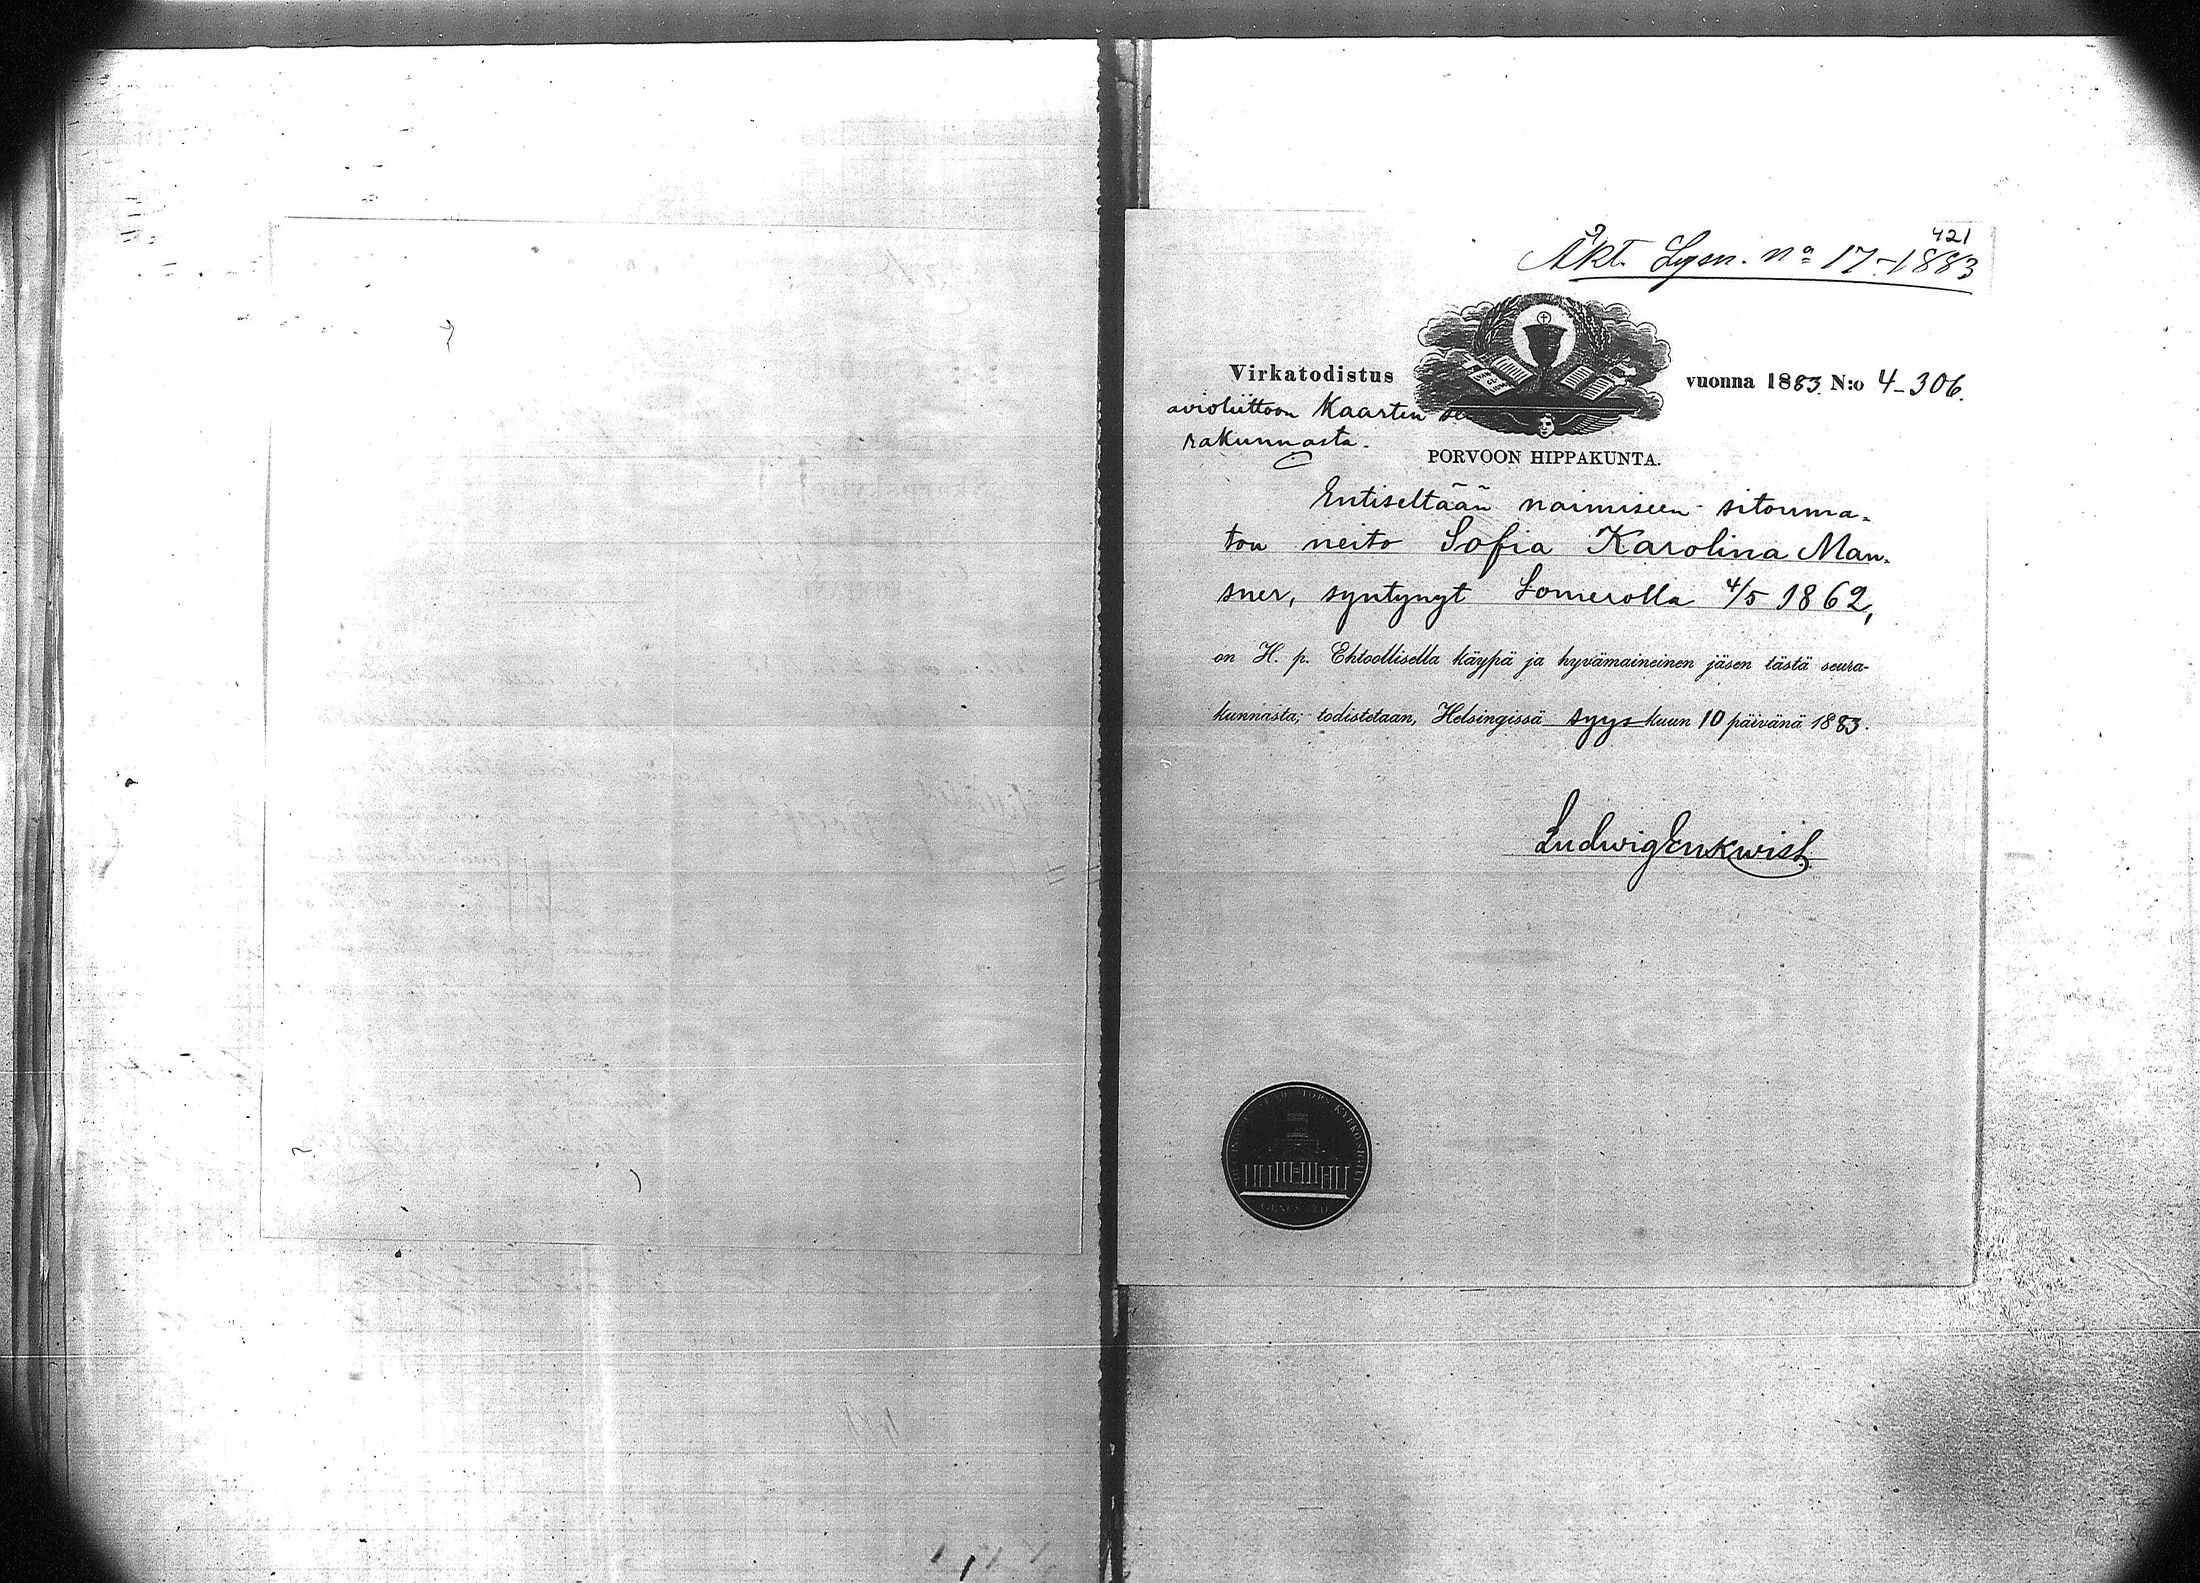 421
Äkt. Lysn. Nº 17-1883
Virkatodistus
vuonna 1883. N:o 4-306.
avioliittoon Kaartin seu
rakunnasta.
PORVOON HIPPAKUNTA.
Entiseltään naimiseen sitouma-
ton neito Sofia Karolina Man-
sner, syntynyt Somerolla 4/5 1862,
on H. p. Ehtoollisella käypä ja hyvämaineinen jäsen tästä seura-
kunnasta; todistetaan, Helsingissä syys kuun 10 päivänä 1883.
Ludwig Enkwist